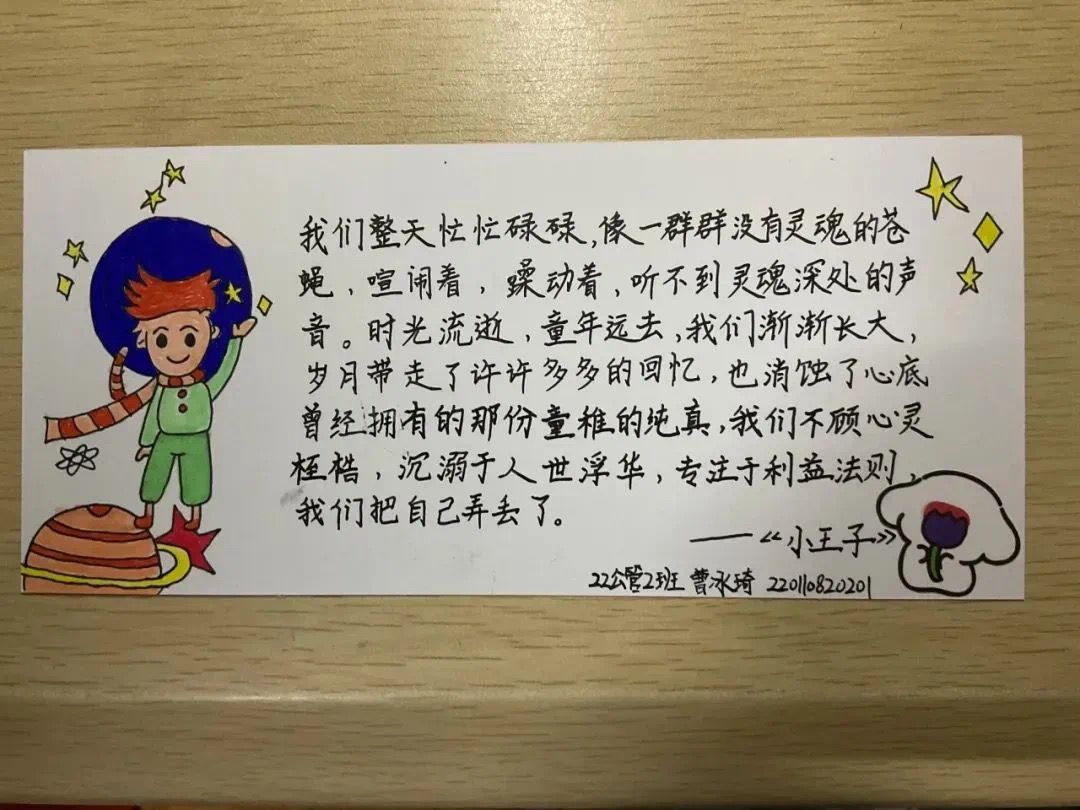 我们整天忙忙碌碌,像一群群没有灵魂的苍
蝇，喧闹着，躁动着，听不到灵魂深处的声
音。时光流逝，童年远去,我们渐渐长大，
岁月带走了许许多多的回忆，也消蚀了心底
曾经拥有的那份童稚的纯真,我们不顾心灵
桎梏，沉溺于人世浮华，专注于利益法则，
我们把自己弄丢了。
——《小王子》
22公管2班 曹冰琦 220110820201